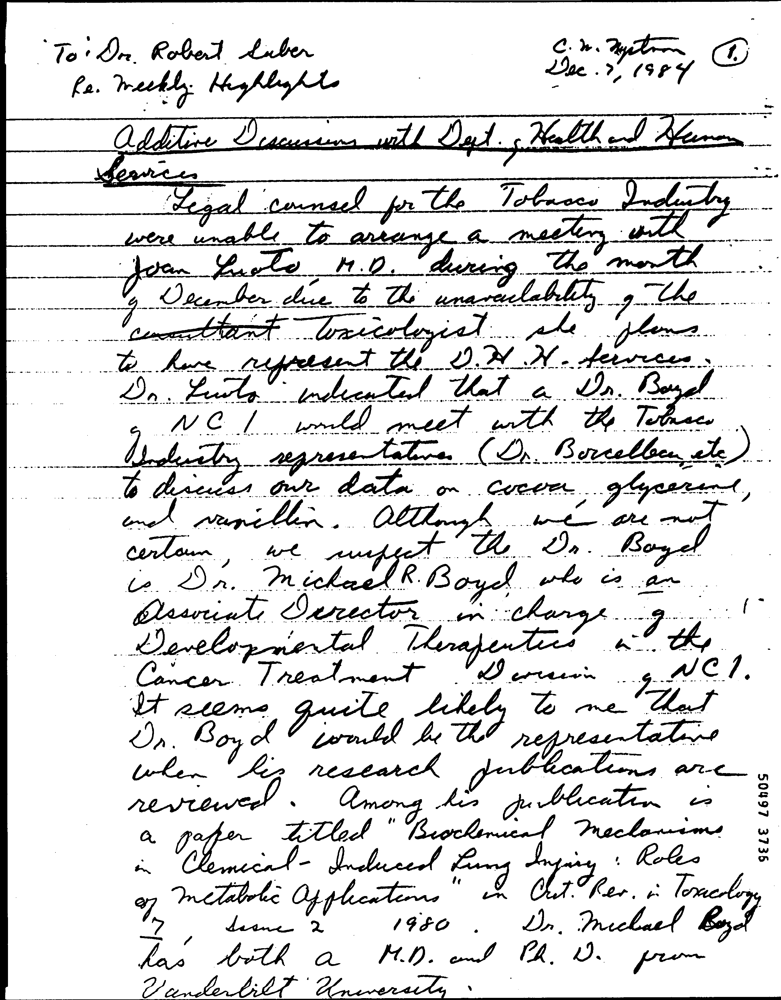 To: Dr. Robert Suber
C. W. Nystrom
Dec. 7, 1984
1.
Re. Weekly Highlights
Additive Discussions with Dept. of Health and Human
Services
Legal counsel for the Tobacco Industry
were unable to arrange a meeting with
Joan Luoto, M.D. during the month
of December due to the unavailability of the
consultant toxicologist she plans
to have represent the D.H.H. Services.
Dr. Luoto indicated that a Dr. Boyd
of NCI would meet with the Tobacco
Industry representatives (Dr. Borcelleca, etc)
to discuss our data on cocoa, glycerine,
and vanillin. Although we are not
certain, we suspect the Dr. Boyd
is Dr. Michael R. Boyd who is an
Associate Director in charge of
Developmental Therapeutics in the
Cancer Treatment Division of NCI.
It seems quite likely to me that
Dr. Boyd would be the representative
when his research publications are
reviewed. Among his publication is
a paper titled "Biochemical Mechanisms
in Chemical-Induced Lung Injury: Roles
of Metabolic Applications" in Crit. Rev. in Toxicology
7, Issue 2 1980. Dr. Michael Boyd
has both a M.D. and Ph. D. from
Vanderbilt University.
50497 3735